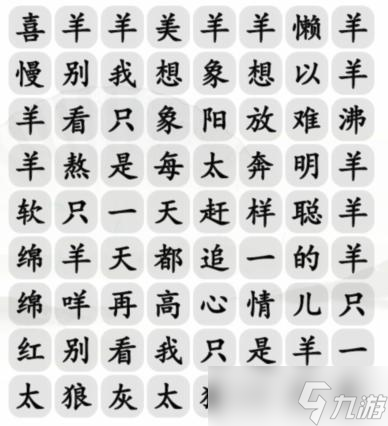 喜羊羊美羊羊懒羊
慢别我想象想以羊
羊看只象阳放难沸
羊熬是每太奔明羊
软只一天赶样聪羊
绵羊天都追一的羊
绵咩再高心情儿只
红别看我只是羊一
太狼灰太
九游